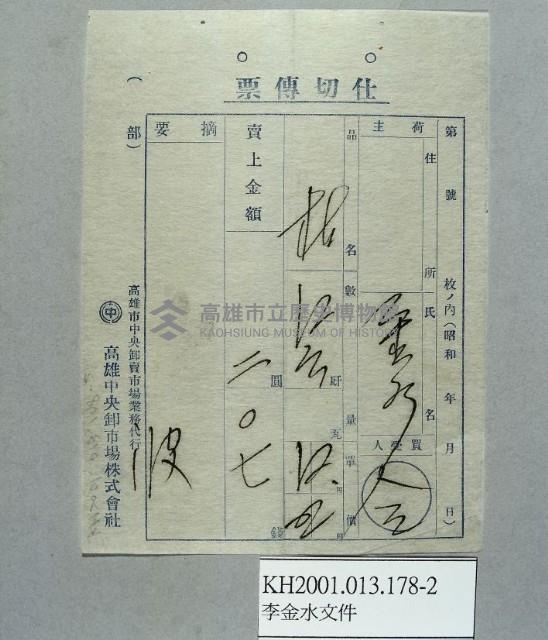 仕切傳票
第　號　枚ノ內(昭和　年　月　日)
荷主
住所
氏名
金水
買受人
品名
數量
瓩
單價
圓
賣上金額
圓
二〇七
摘要
(　部)
高雄市中央卸賣市場業務代行
中
高雄中央卸市場株式會社
高雄市立歷史博物館
KAOHSIUNG MUSEUM OF HISTORY
KH2001.013.178-2
李金水文件